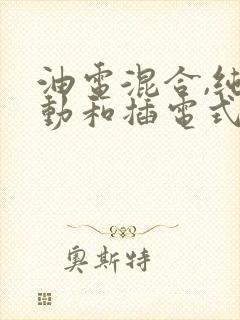 油電混合,純
動和插電式
奧斯特